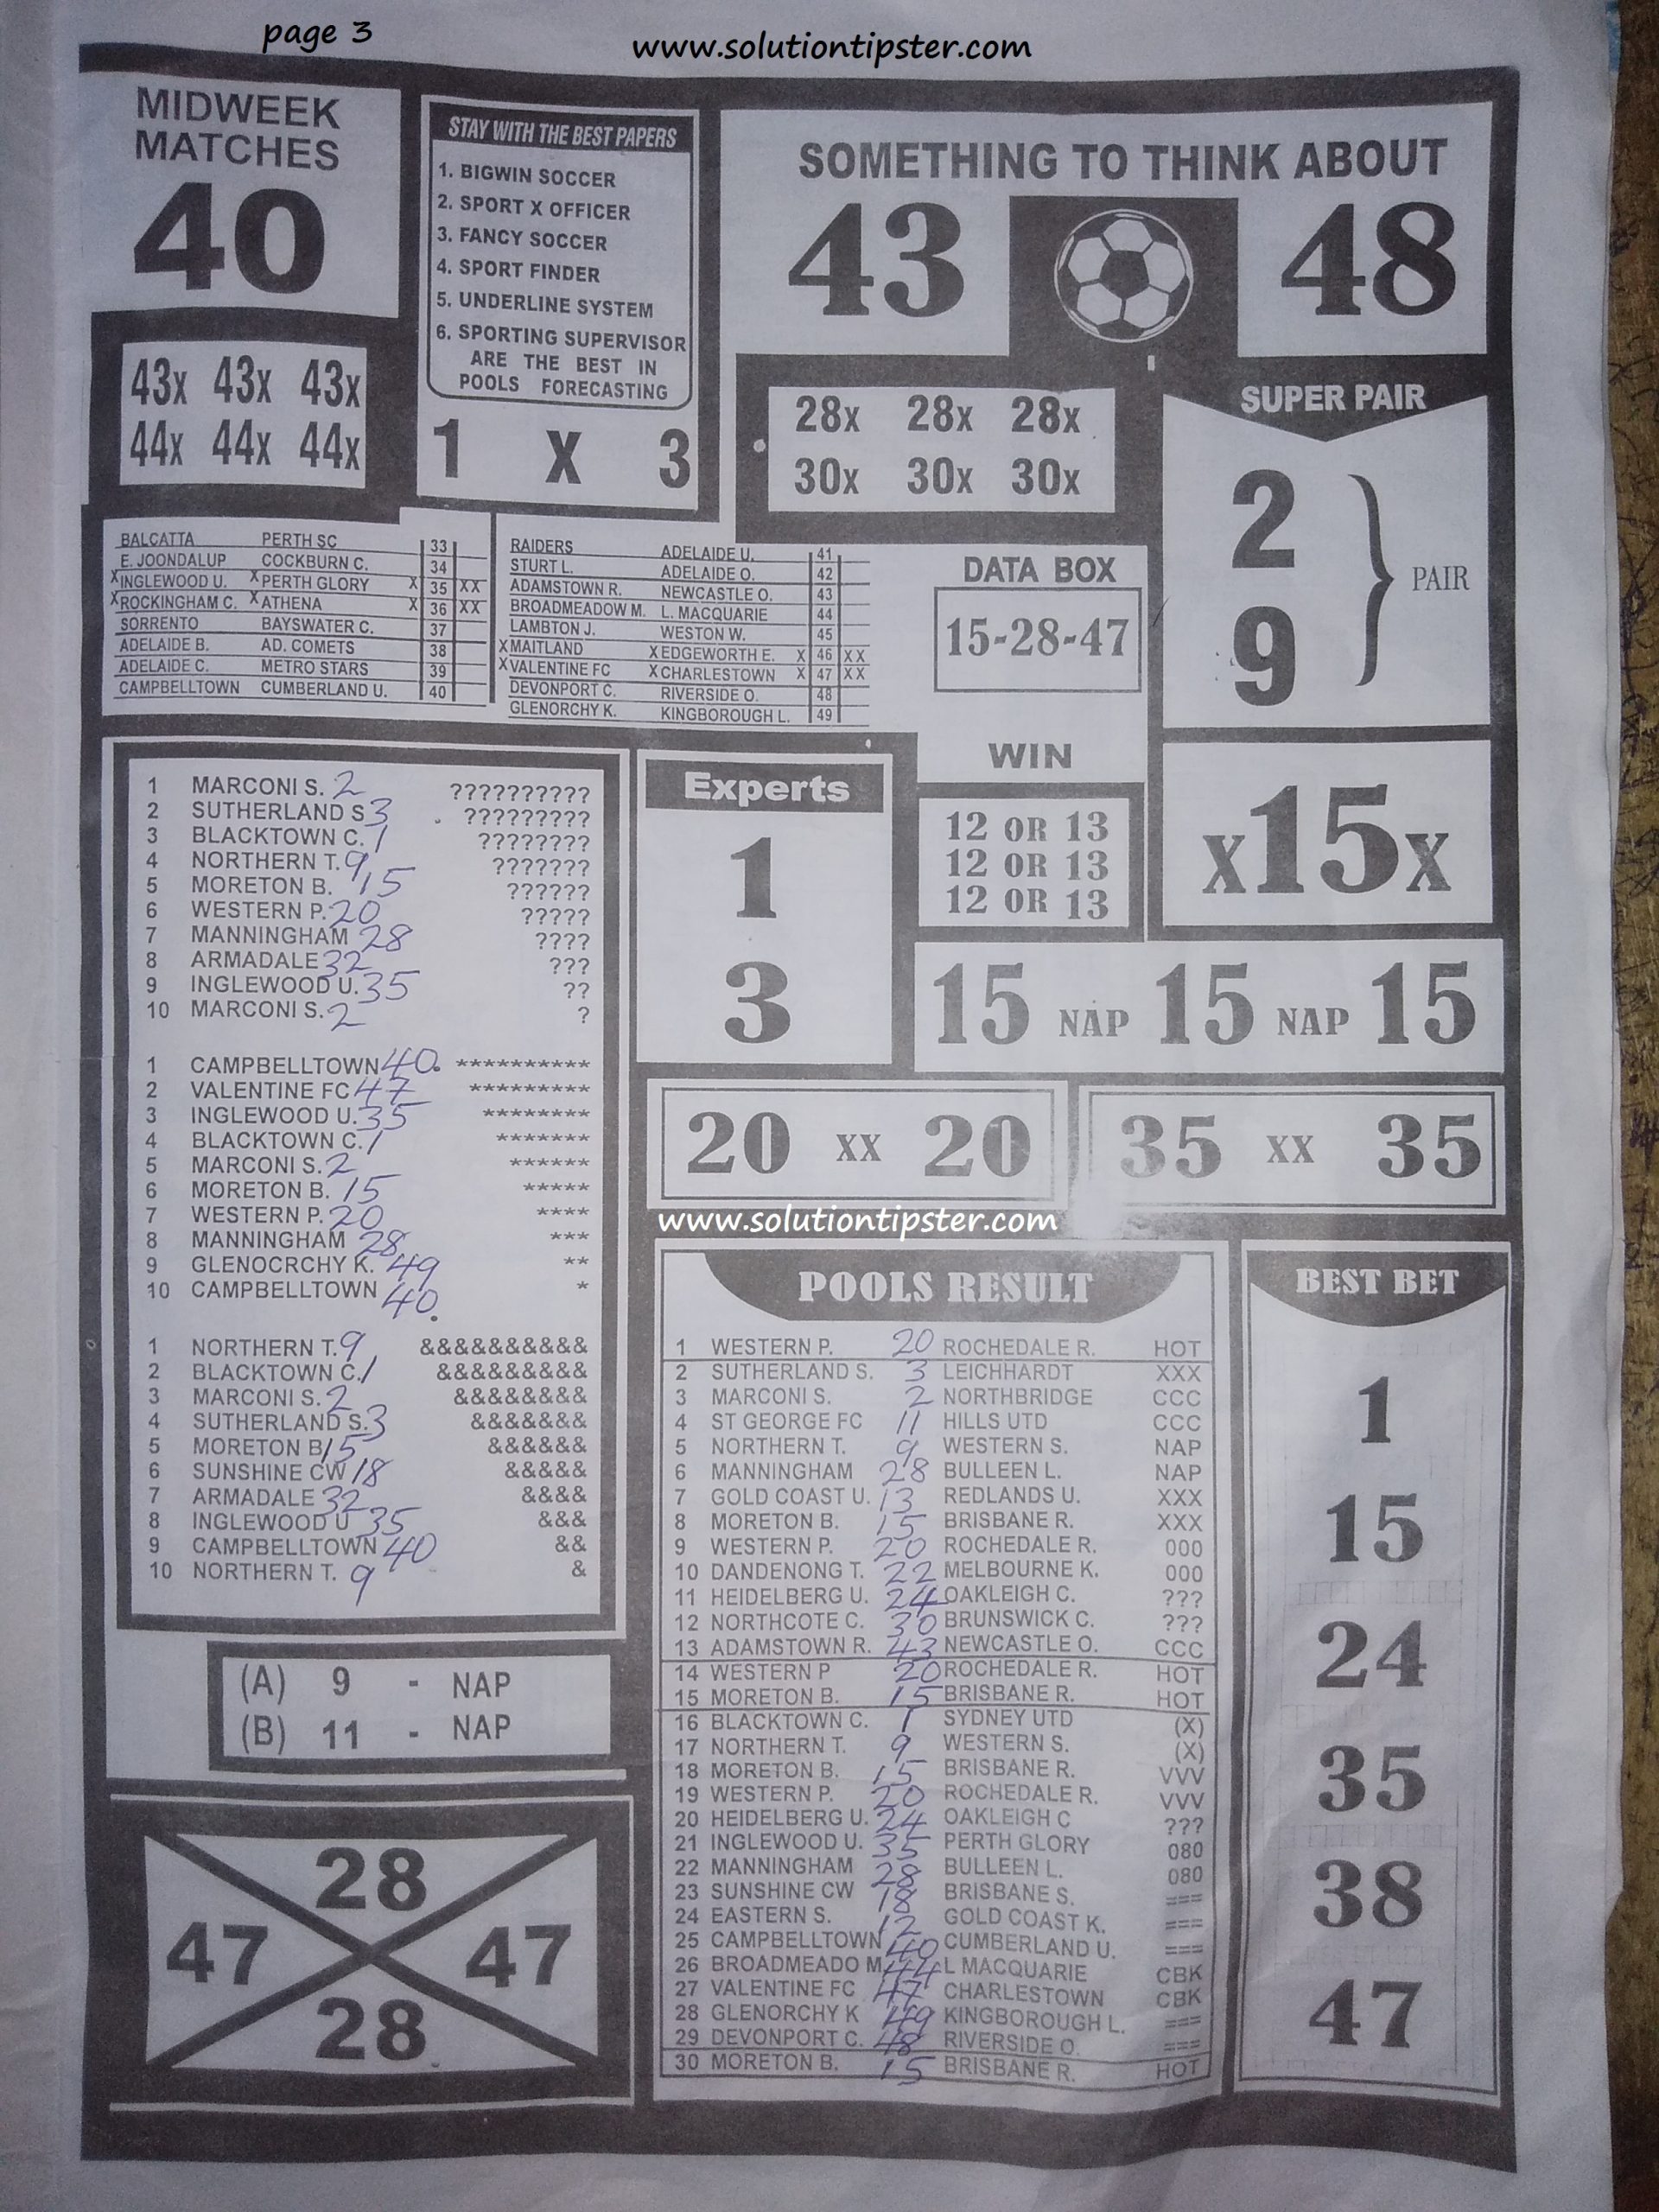 page 3
www.solutiontipster.com
MIDWEEK
MATCHES
40
43x 43x 43x
44x 44x 44x
STAY WITH THE BEST PAPERS
1. BIGWIN SOCCER
2. SPORT X OFFICER
3. FANCY SOCCER
4. SPORT FINDER
5. UNDERLINE SYSTEM
6. SPORTING SUPERVISOR
ARE THE BEST IN
POOLS FORECASTING
1 X 3
SOMETHING TO THINK ABOUT
43 48
28x 28x 28x
30x 30x 30x
SUPER PAIR
2
9
PAIR
BALCATTA PERTH SC 33
E. JOONDALUP COCKBURN C. 34
XINGLEWOOD U. XPERTH GLORY X 35 XX
XROCKINGHAM C. XATHENA X 36 XX
SORRENTO BAYSWATER C. 37
ADELAIDE B. AD. COMETS 38
ADELAIDE C. METRO STARS 39
CAMPBELLTOWN CUMBERLAND U. 40
RAIDERS ADELAIDE U. 41
STURT L. ADELAIDE O. 42
ADAMSTOWN R. NEWCASTLE O. 43
BROADMEADOW M. L. MACQUARIE 44
LAMBTON J. WESTON W. 45
XMAITLAND XEDGEWORTH E. X 46 XX
XVALENTINE FC XCHARLESTOWN X 47 XX
DEVONPORT C. RIVERSIDE O. 48
GLENORCHY K. KINGBOROUGH L. 49
DATA BOX
15-28-47
WIN
12 OR 13
12 OR 13
12 OR 13
x15x
1 MARCONI S. 2 ??????????
2 SUTHERLAND S 3 ?????????
3 BLACKTOWN C. 1 ????????
4 NORTHERN T. 9 ???????
5 MORETON B. 15 ??????
6 WESTERN P. 20 ?????
7 MANNINGHAM 28 ????
8 ARMADALE 32 ???
9 INGLEWOOD U. 35 ??
10 MARCONI S. 2 ?
1 CAMPBELLTOWN 40. **********
2 VALENTINE FC 47 *********
3 INGLEWOOD U. 35 ********
4 BLACKTOWN C. 1 *******
5 MARCONI S. 2 ******
6 MORETON B. 15 *****
7 WESTERN P. 20 ****
8 MANNINGHAM 28 ***
9 GLENOCRCHY K. 49 **
10 CAMPBELLTOWN 40. *
1 NORTHERN T. 9 &&&&&&&&&&
2 BLACKTOWN C. 1 &&&&&&&&&
3 MARCONI S. 2 &&&&&&&&
4 SUTHERLAND S. 3 &&&&&&&
5 MORETON B 15 &&&&&&
6 SUNSHINE CW 18 &&&&&
7 ARMADALE 32 &&&&
8 INGLEWOOD U 35 &&&
9 CAMPBELLTOWN 40 &&
10 NORTHERN T. 9 &
Experts
1
3
15 NAP 15 NAP 15
20 XX 20
35 XX 35
www.solutiontipster.com
(A) 9 - NAP
(B) 11 - NAP
28
47 47
28
POOLS RESULT
1 WESTERN P. 20 ROCHEDALE R. HOT
2 SUTHERLAND S. 3 LEICHHARDT XXX
3 MARCONI S. 2 NORTHBRIDGE CCC
4 ST GEORGE FC 11 HILLS UTD CCC
5 NORTHERN T. 9 WESTERN S. NAP
6 MANNINGHAM 28 BULLEEN L. NAP
7 GOLD COAST U. 13 REDLANDS U. XXX
8 MORETON B. 15 BRISBANE R. XXX
9 WESTERN P. 20 ROCHEDALE R. 000
10 DANDENONG T. 22 MELBOURNE K. 000
11 HEIDELBERG U. 24 OAKLEIGH C. ???
12 NORTHCOTE C. 30 BRUNSWICK C. ???
13 ADAMSTOWN R. 43 NEWCASTLE O. CCC
14 WESTERN P 20 ROCHEDALE R. HOT
15 MORETON B. 15 BRISBANE R. HOT
16 BLACKTOWN C. 1 SYDNEY UTD (X)
17 NORTHERN T. 9 WESTERN S. (X)
18 MORETON B. 15 BRISBANE R. VVV
19 WESTERN P. 20 ROCHEDALE R. VVV
20 HEIDELBERG U. 24 OAKLEIGH C ???
21 INGLEWOOD U. 35 PERTH GLORY 080
22 MANNINGHAM 28 BULLEEN L. 080
23 SUNSHINE CW 18 BRISBANE S. ===
24 EASTERN S. 12 GOLD COAST K. ===
25 CAMPBELLTOWN 40 CUMBERLAND U. ===
26 BROADMEADO M. 44 L MACQUARIE CBK
27 VALENTINE FC 47 CHARLESTOWN CBK
28 GLENORCHY K 49 KINGBOROUGH L. ===
29 DEVONPORT C. 48 RIVERSIDE O. ===
30 MORETON B. 15 BRISBANE R. HOT
BEST BET
1
15
24
35
38
47